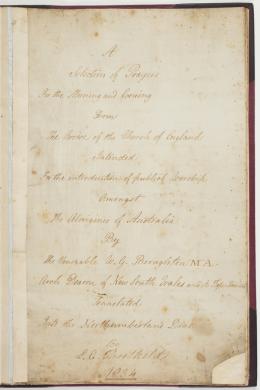 A
Selection of Prayers
For the Morning and Evening
From
The Service of the Church of England
Intended
For the introduction of publick Worship
Amongst
The Aborigines of Australia
By
The Venerable W. G. Broughton M A.
Arch Deacon of New South Wales and its
Translated
Into the Northumberland Dialect
By
L. E. Threlkeld
1834